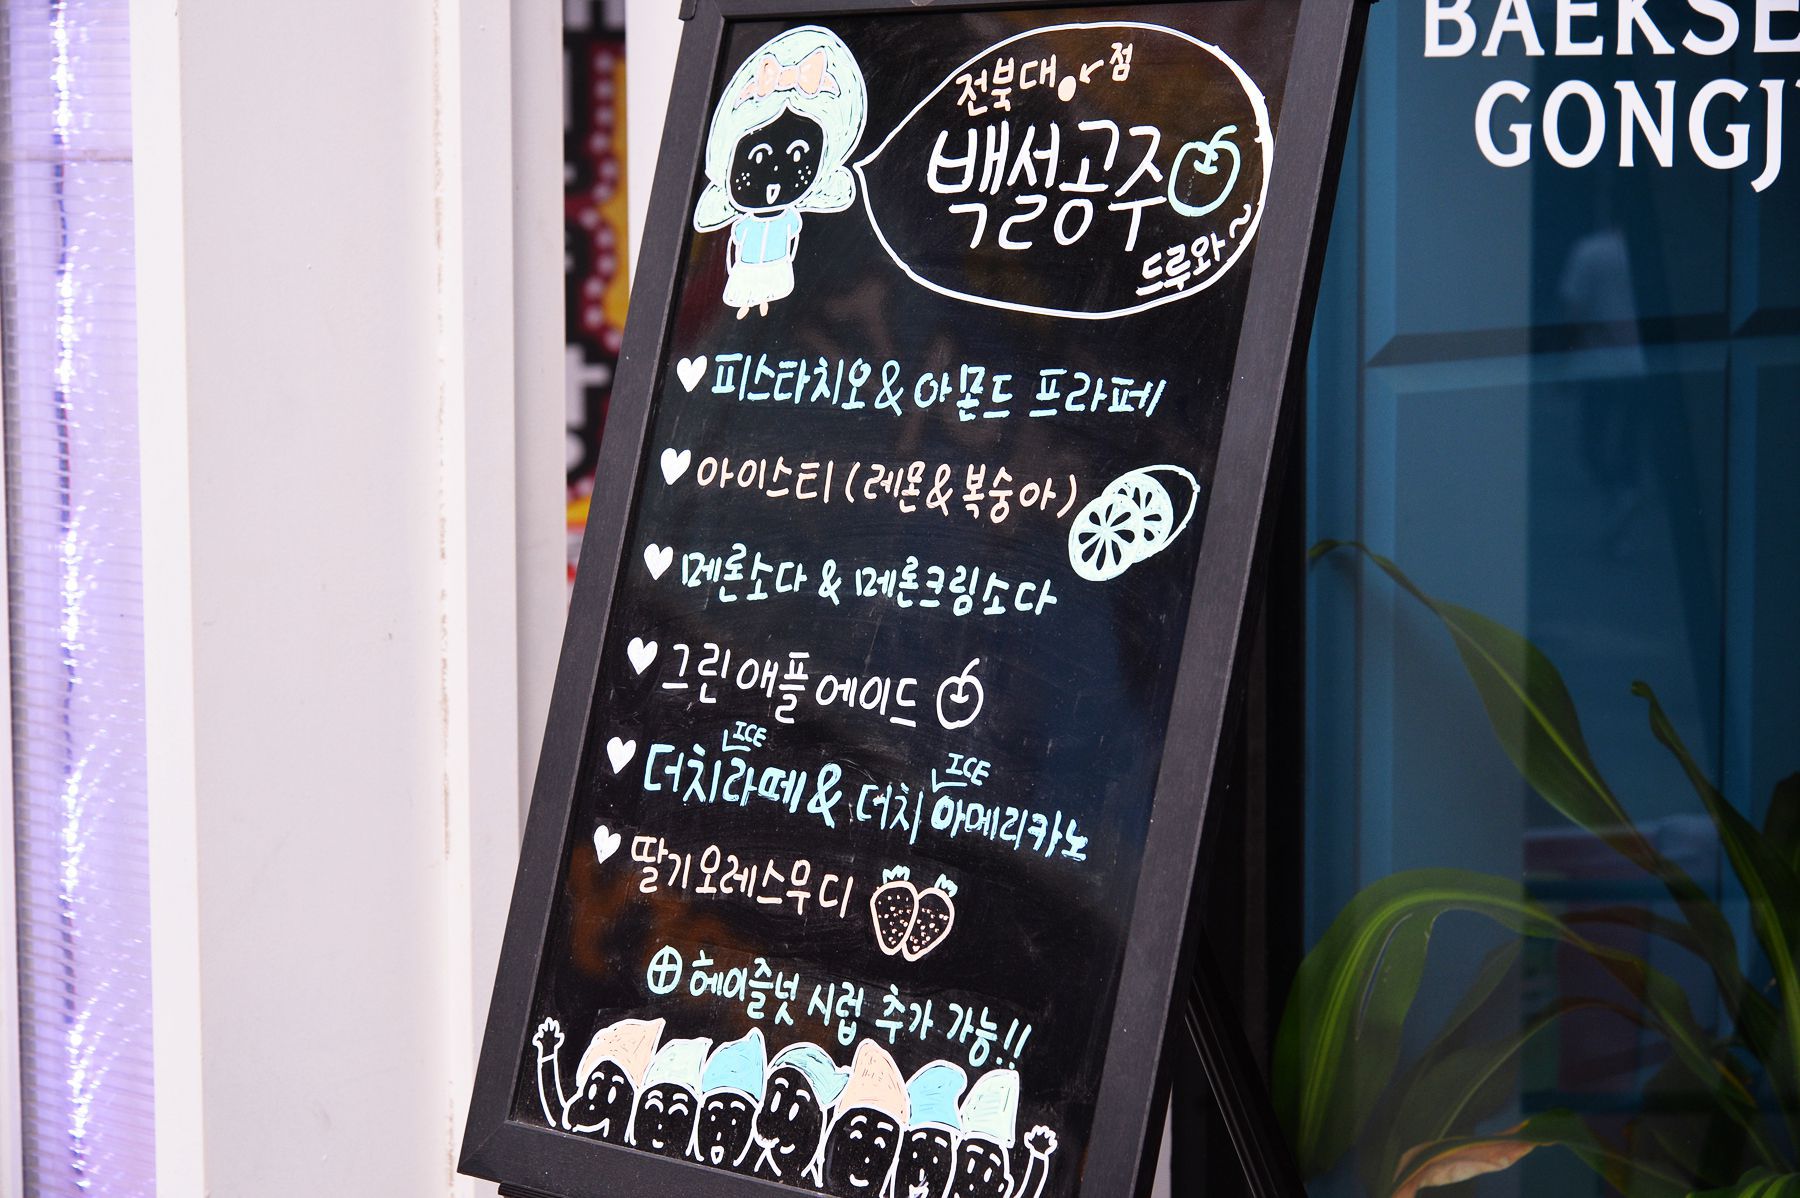 전북대 점
백설공주
드루와~
피스타치오 & 아몬드 프라페
아이스티 (레몬 & 복숭아)
메론소다 & 메론크림소다
그린애플에이드
ICE ICE
더치라떼 & 더치 아메리카노
딸기오레스무디
⊕ 헤이즐넛 시럽 추가 가능!!
BAEKSE
GONGJ